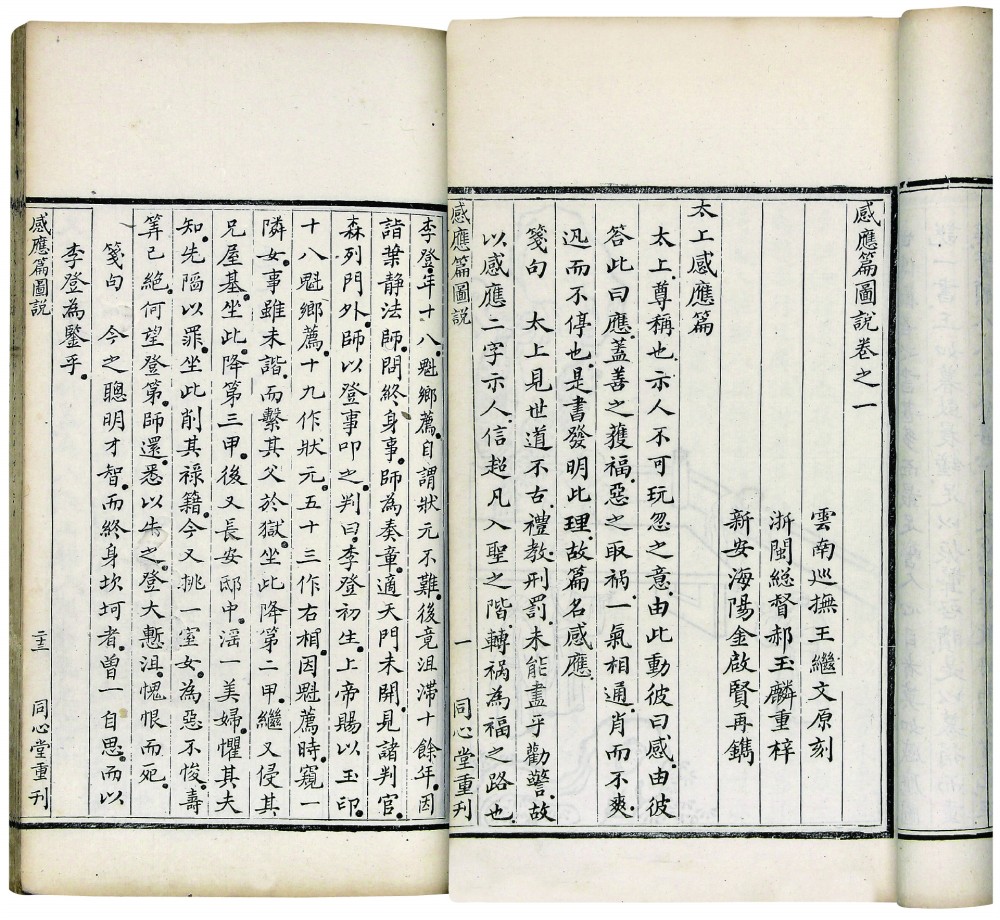 感應篇圖說卷之一
雲南巡撫王繼文原刻
浙閩総督郝玉麟重梓
新安海陽金啟賢再鐫
太上感應篇
太上。尊稱也。示人不可玩忽之意。由此動彼曰感。由彼
答此曰應。蓋善之獲福。惡之取禍。一氣相通。肖而不爽。
迅而不停也。是書發明此理。故篇名感應。
箋句 太上見世道不古。禮教。刑罰。未能盡乎勸警。故
以感應二字示人。信超凡入聖之階。轉禍為福之路也。
感應篇圖説 一 同心堂重刊
李登。年十八。魁鄉薦。自謂狀元不難。後竟沮滯十餘年。因
詣葉静法師。問終身事。師為奏章。適天門未開。見諸判官。
森列門外。師以登事叩之。判曰。李登初生。上帝賜以玉印。
十八魁鄉薦。十九作狀元。五十三作右相。因魁薦時。窺一
隣女。事雖未諧。而繫其父於獄。坐此降第二甲。繼又侵其
兄屋基。坐此。降第三甲。後又長安邸中。淫一美婦。懼其夫
知。先陷以罪。坐此削其祿籍。今又挑一室女。為惡不悛。壽
筭已絕。何望登第。師還。悉以告之。登大慙沮。愧恨而死。
箋句 今之聰明才智。而終身坎坷者。曾一自思。而以
李登為鑒乎。
感應篇圖説 同心堂重刊